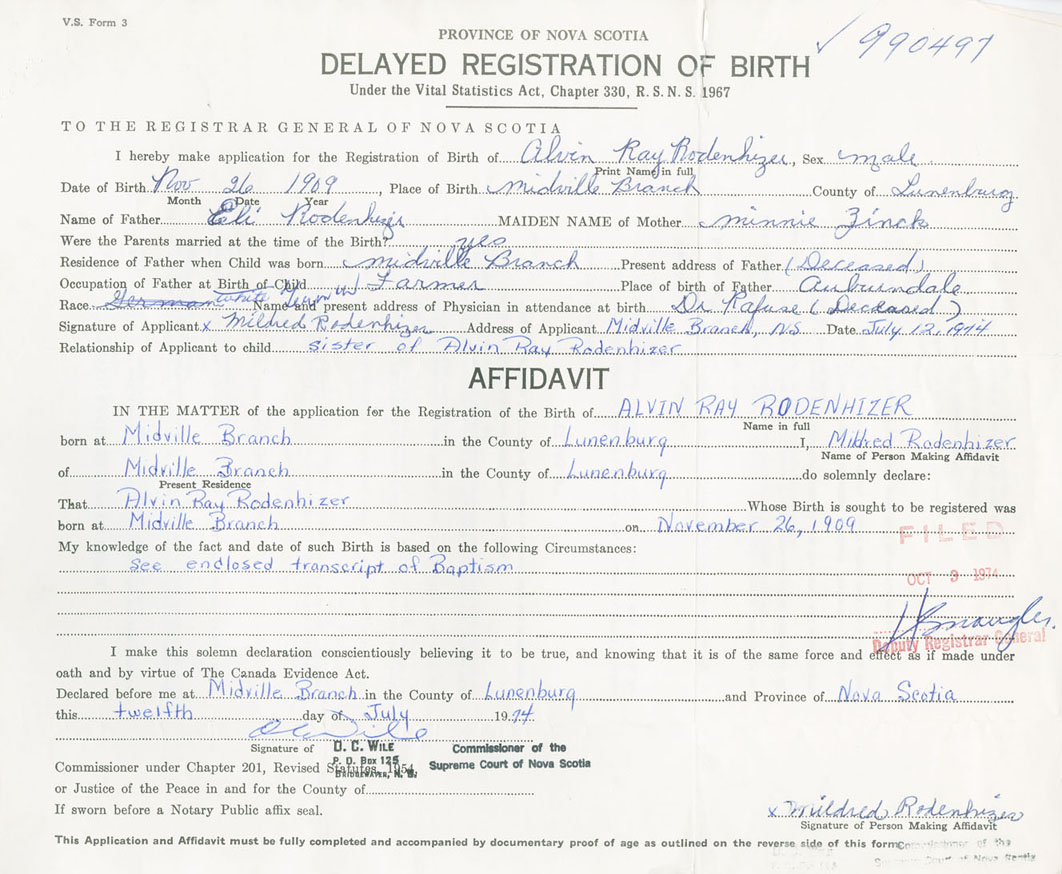 V.S. Form 3
✓ 990497
PROVINCE OF NOVA SCOTIA
DELAYED REGISTRATION OF BIRTH
Under the Vital Statistics Act, Chapter 330, R.S.N.S. 1967
TO THE REGISTRAR GENERAL OF NOVA SCOTIA
I hereby make application for the Registration of Birth of Alvin Ray Rodenhizer, Sex male
Print Name in full
Date of Birth Nov 26 1909, Place of Birth Midville Branch County of Lunenburg
Month Date Year
Name of Father Eli Rodenhizer MAIDEN NAME of Mother Minnie Zinck
Were the Parents married at the time of the Birth? yes
Residence of Father when Child was born Midville Branch Present address of Father (Deceased)
Occupation of Father at Birth of Child Farmer Place of birth of Father Auburndale
Race German White Name and present address of Physician in attendance at birth Dr Rafuse (Deceased)
Signature of Applicant x Mildred Rodenhizer Address of Applicant Midville Branch, N.S. Date July 12, 1974
Relationship of Applicant to child sister of Alvin Ray Rodenhizer
AFFIDAVIT
IN THE MATTER of the application for the Registration of the Birth of ALVIN RAY RODENHIZER
Name in full
born at Midville Branch in the County of Lunenburg I, Mildred Rodenhizer
Name of Person Making Affidavit
of Midville Branch in the County of Lunenburg do solemnly declare:
Present Residence
That Alvin Ray Rodenhizer Whose Birth is sought to be registered was
born at Midville Branch on November 26, 1909
FILED
My knowledge of the fact and date of such Birth is based on the following Circumstances:
See enclosed transcript of Baptism
OCT 9 1974
Deputy Registrar General
I make this solemn declaration conscientiously believing it to be true, and knowing that it is of the same force and effect as if made under
oath and by virtue of The Canada Evidence Act.
Declared before me at Midville Branch in the County of Lunenburg and Province of Nova Scotia
this twelfth day of July 1974.
D C Wile
Signature of D. C. WILE Commissioner of the
P. O. BOX 125 Supreme Court of Nova Scotia
BRIDGEWATER, N. S.
Commissioner under Chapter 201, Revised Statutes, 1954
or Justice of the Peace in and for the County of
If sworn before a Notary Public affix seal.
x Mildred Rodenhizer
Signature of Person Making Affidavit
This Application and Affidavit must be fully completed and accompanied by documentary proof of age as outlined on the reverse side of this form
Commissioner of the
Supreme Court of Nova Scotia